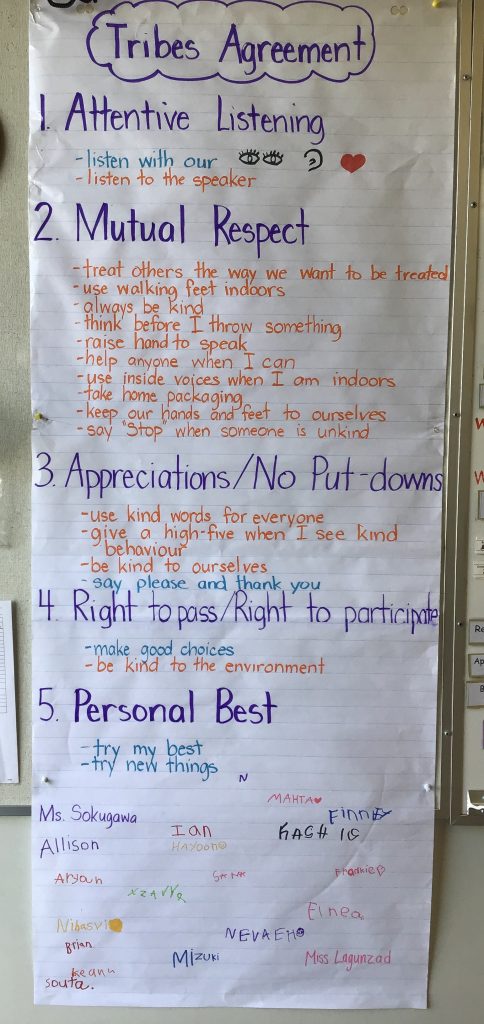 Tribes Agreement
1. Attentive Listening
-listen with our
-listen to the speaker
2. Mutual Respect
-treat others the way we want to be treated
-use walking feet indoors
-always be kind
-think before I throw something
-raise hand to speak
-help anyone when I can
-use inside voices when I am indoors
-take home packaging
-keep our hands and feet to ourselves
-say "Stop" when someone is unkind
3. Appreciations/No Put-downs
-use kind words for everyone
-give a high-five when I see kind
behaviour
-be kind to ourselves
-say please and thank you
4. Right to pass/Right to participate
-make good choices
-be kind to the environment
5. Personal Best
-try my best
-try new things
N
MAHTA
Ms. Sokugawa Finn
Ian
Allison HAYOON
Aryan Frankie
Einea
Nibasvi NEVAEH
Brian Mizuki Miss Lagunzad
Keann
souta.